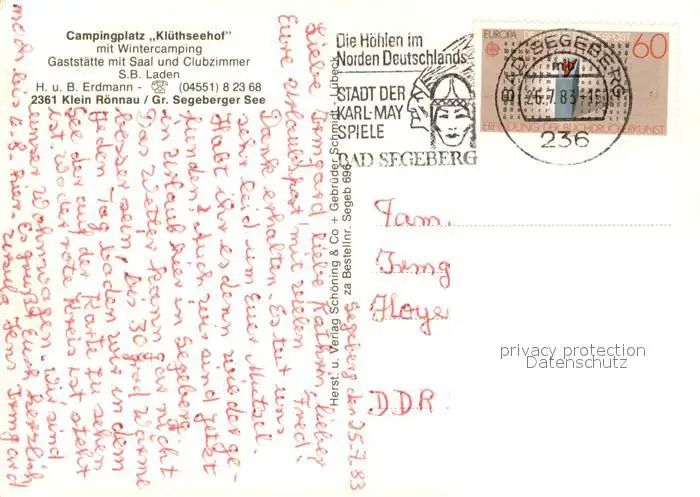 Campingplatz „Klüthseehof"
mit Wintercamping
Gaststätte mit Saal und Clubzimmer
S.B. Laden
H. u. B. Erdmann - ☎ (04551) 8 23 68
2361 Klein Rönnau / Gr. Segeberger See
Die Höhlen im
Norden Deutschlands
STADT DER
KARL-MAY
SPIELE
BAD SEGEBERG
EUROPA DEUTSCHE BUNDESPOST 60
ERFINDUNG DER BUCHDRUCKERKUNST
BAD SEGEBERG
mb
26.7.83-15
236
Segeberg den 25.7.83
Liebe Irmgard, liebe Kathrin, lieber Fred!
Eure Urlaubspost mit vielen
Dank erhalten. Es tut uns
sehr leid um Euer Mutsel.
Habt ihr es denn wiederge-
funden? Auch wir sind jetzt
in Urlaub hier in Segeberg.
Das Wetter kann gar nicht
besser sein, bis 30 grad Wärme
jeden Tag baden wir in dem
See der auf der Karte zu sehen
ist. Wo der rote Kreis ist steht
unser Wohnwagen. Wir sind
noch bis z. 8. hier. Es grüßt Euch herzlich
Ursula Jens Irmgard
Herst. u. Verlag Schöning & Co + Gebrüder Schmidt - Lübeck
za Bestellnr. Segeb 696
Fam.
Irmg
Hoye
DDR
privacy protection
Datenschutz